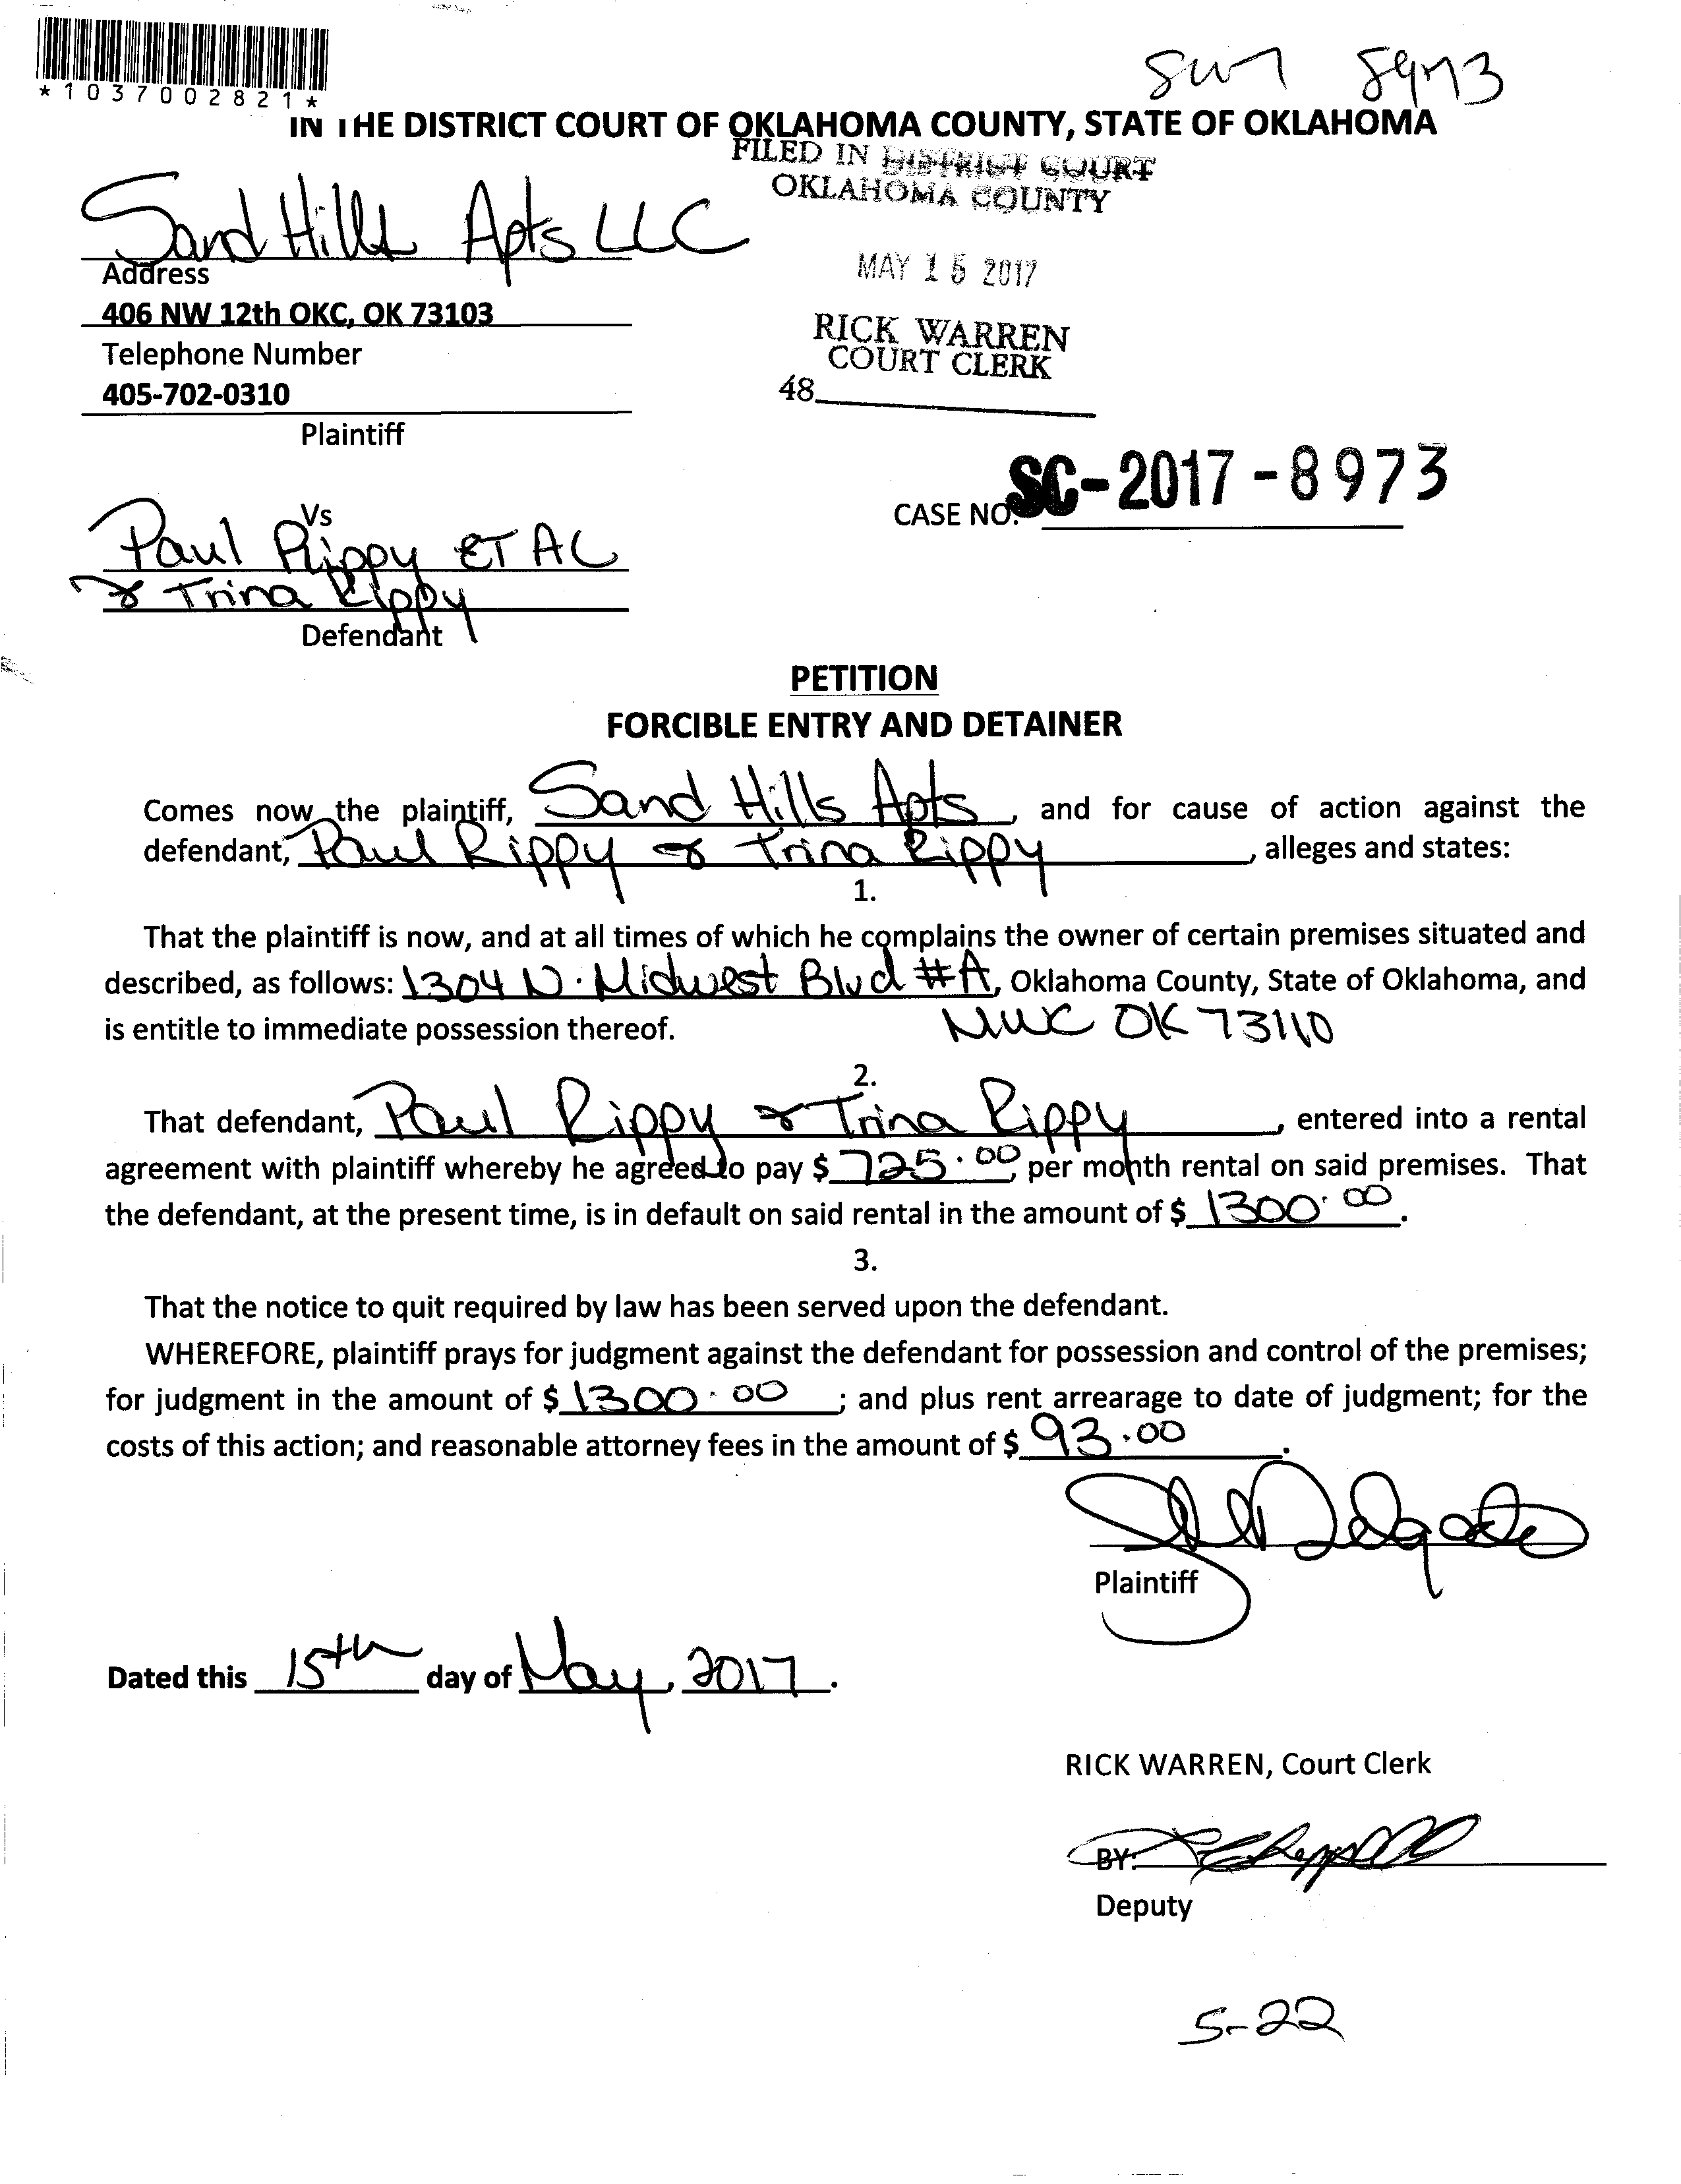 *1037002821*
8973
IN THE DISTRICT COURT OF OKLAHOMA COUNTY, STATE OF OKLAHOMA
FILED IN DISTRICT COURT
OKLAHOMA COUNTY
Sand Hills Apts LLC
Address
MAY 15 2017
406 NW 12th OKC, OK 73103
RICK WARREN
COURT CLERK
Telephone Number
405-702-0310
48
Plaintiff
CASE NO. SC-2017-8973
Vs
Paul Rippy ET AL
& Trina Rippy
Defendant
PETITION
FORCIBLE ENTRY AND DETAINER
Comes now the plaintiff, Sand Hills Apts, and for cause of action against the
defendant, Paul Rippy & Trina Rippy, alleges and states:
1.
That the plaintiff is now, and at all times of which he complains the owner of certain premises situated and
described, as follows: 1304 N. Midwest Blvd #A, Oklahoma County, State of Oklahoma, and
is entitle to immediate possession thereof. MWC OK 73110
2.
That defendant, Paul Rippy & Trina Rippy, entered into a rental
agreement with plaintiff whereby he agreed to pay $ 725.00, per month rental on said premises. That
the defendant, at the present time, is in default on said rental in the amount of $ 1300.00.
3.
That the notice to quit required by law has been served upon the defendant.
WHEREFORE, plaintiff prays for judgment against the defendant for possession and control of the premises;
for judgment in the amount of $ 1300.00; and plus rent arrearage to date of judgment; for the
costs of this action; and reasonable attorney fees in the amount of $ 93.00.
Delgado
Plaintiff
Dated this 15th day of May, 2017.
RICK WARREN, Court Clerk
BY:
Deputy
5-22